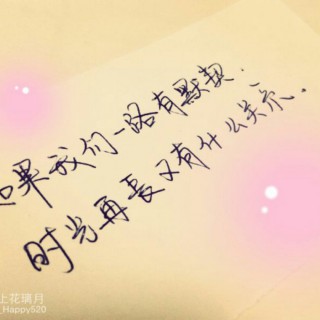 如果我们一路有默契.
时光再长又有什么关系.
上花璃月
_Happy520